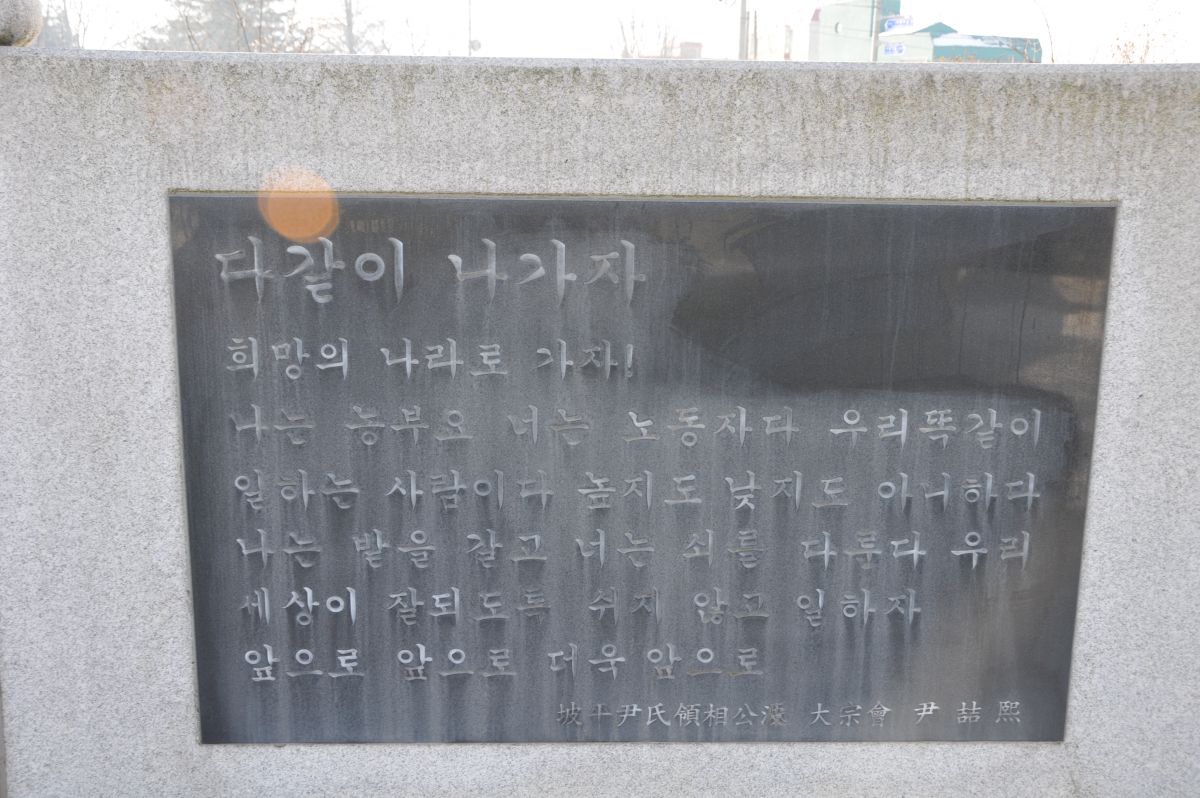 다같이 나가자
희망의 나라로 가자!
나는 농부요 너는 노동자다 우리똑같이
일하는 사람이다 높지도 낮지도 아니하다
나는 밭을 갈고 너는 쇠를 다룬다 우리
세상이 잘되도록 쉬지 않고 일하자
앞으로 앞으로 더욱 앞으로
坡平尹氏領相公派 大宗會 尹喆熙